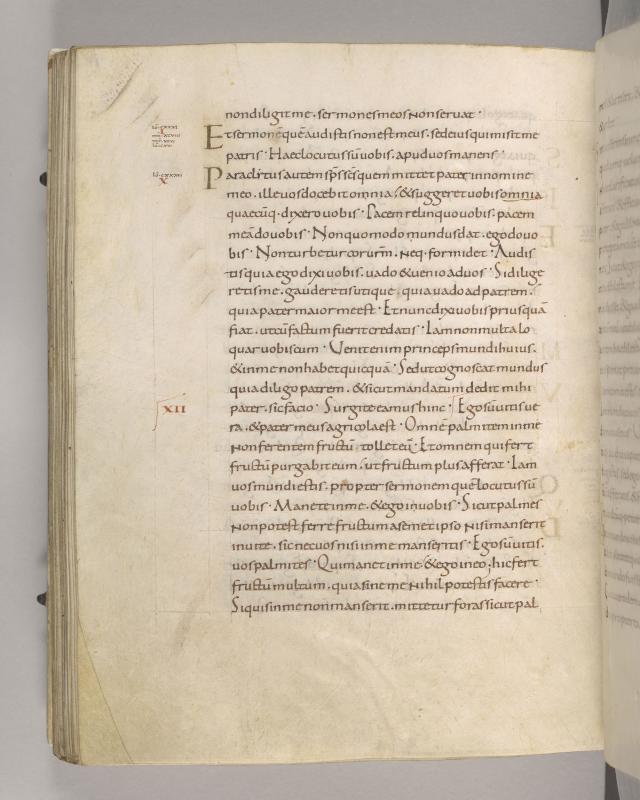 non diligit me. sermones meos non servat.
Et sermonē quē audistis non est meus. sed eius qui misit me
patris. Haec locutus sū vobis. apud vos manens.
Paraclitus autem sp̄s sc̄s quem mittet pater in nomine
meo. ille vos docebit omnia. & suggeret vobis omnia
quaecūq. dixero vobis. Pacem relinquo vobis. pacem
meā do vobis. Non quomodo mundus dat. ego do vo
bis. Non turbetur cor vr̄m. neq. formidet. Audis
tis quia ego dixi vobis. vado & venio ad vos. Si dilige
retis me. gauderetis utique. quia vado ad patrem.
quia pater maior me est. Et nunc dixi vobis priusquā
fiat. ut cū factum fuerit credatis. Iam non multa lo
quar vobiscum. Venit enim princeps mundi huius.
& in me non habet quicquā. Sed ut cognoscat mundus
quia diligo patrem. & sicut mandatum dedit mihi
XII
pater. sic facio. Surgite eamus hinc. Ego sū vitis ve
ra. & pater meus agricola est. Omnē palmitem in me
non ferentem fructū. tollet eū. Et omnem qui fert
fructū purgabit eum. ut fructum plus afferat. Iam
vos mundi estis. propter sermonem quē locutus sū
vobis. Manete in me. & ego in vobis. Sicut palmes
non potest ferre fructum a semet ipso nisi manserit
in vite. sic nec vos nisi in me manseritis. Ego sū vitis.
vos palmites. Qui manet in me. & ego in eo; hic fert
fructū multum. quia sine me nihil potestis facere.
Si quis in me non manserit. mittetur foras sicut pal